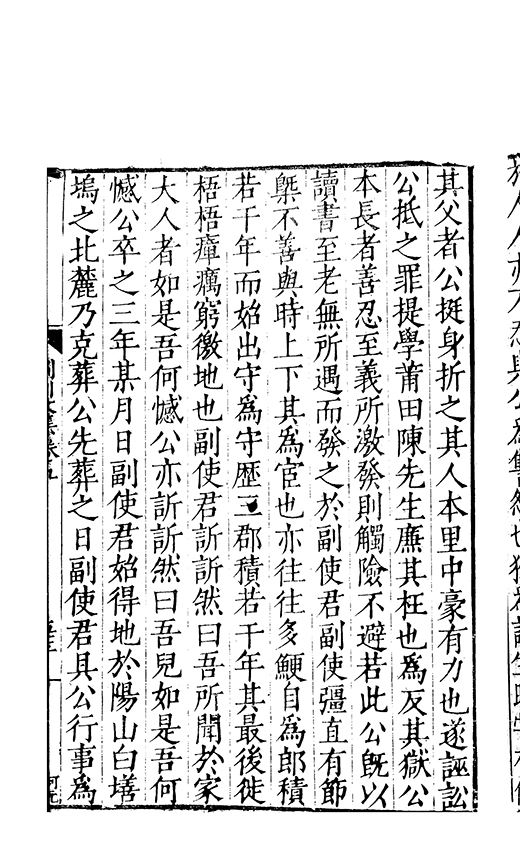 其父者公挺身折之其人本里中豪有力也遂誣訟
公抵之罪提學莆田陳先生廉其枉也為反其獄公
本長者善忍至義所激發則觸險不避若此公既以
讀書至老無所遇而發之於副使君副使彊直有節
槩不善與時上下其為宦也亦往往多鯁自為郎積
若干年而始出守為守歷三郡積若干年其最後徙
梧梧瘴癘窮徼地也副使君訢訢然曰吾所聞於家
大人者如是吾何憾公亦訢訢然曰吾兒如是吾何
憾公卒之三年某月日副使君始得地於陽山白墡
塢之北麓乃克葬公先葬之日副使君具公行事為